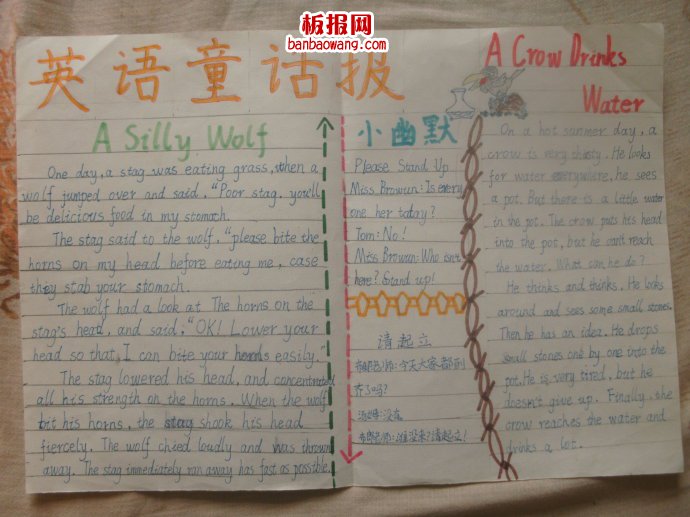 板报网
banbaowang.com
英语童话报
A Silly Wolf
One day, a stag was eating grass, when a
wolf jumped over and said, "Poor stag, you'll
be delicious food in my stomach.
The stag said to the wolf, "please bite the
horns on my head before eating me, case
they stab your stomach.
The wolf had a look at The horns on the
stag's head, and said, "OK! Lower your
head so that I can bite your horns easily."
The stag lowered his head, and concentrated
all his strength on the horns. When the wolf
bit his horns, the stag shook his head
fiercely. The wolf chied loudly and was thrown
away. The stag immediately ran away has fast as possible.
小幽默
Please Stand Up
Miss Browun: Is every
one her tatay?
Tom: No!
Miss Browun: Who isn't
here? Stand up!
请起立
布朗老师:今天大家都到
齐了吗?
汤姆:没有
布朗老师:谁没来?请起立!
A Crow Drinks
Water
On a hot summer day, a
crow is very thisty. He looks
for water everywhere, he sees
a pot. But there is a little water
in the pot. The crow puts his head
into the pot, but he can't reach
the water. What can he do?
He thinks and thinks. He looks
around and sees some small stones.
Then he has an idea. He drops
small stones one by one into the
pot. He is very tired, but he
doesn't give up. Finally, the
crow reaches the water and
drinks a lot.